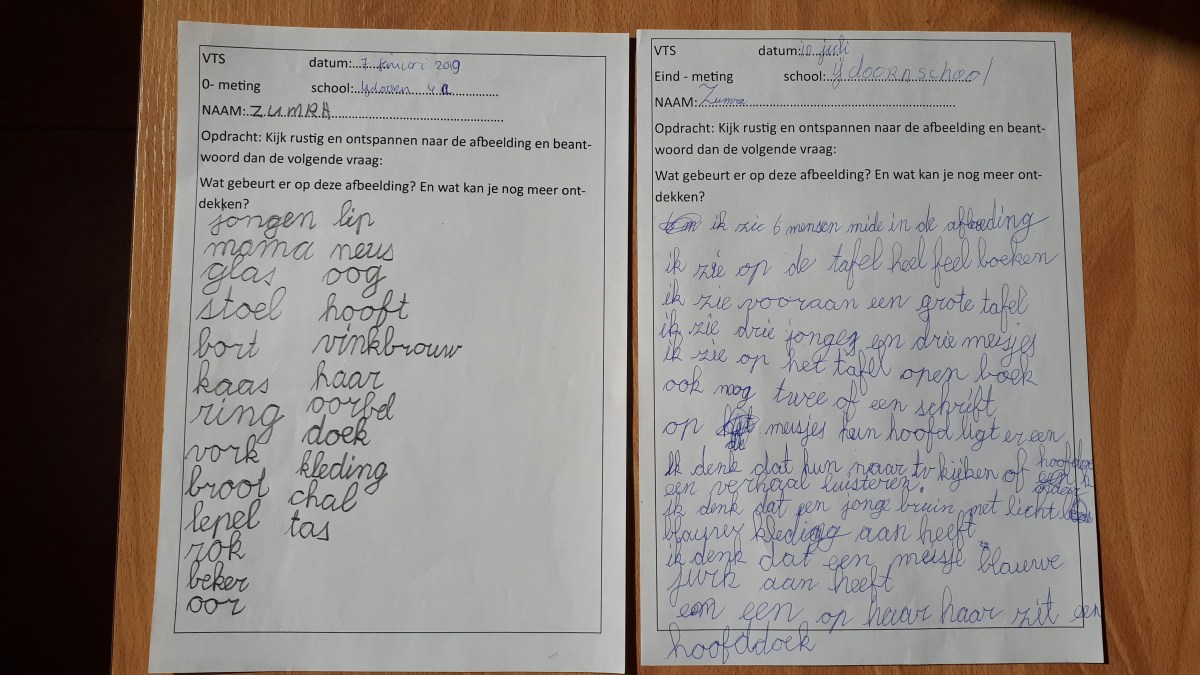 VTS
datum:...7 januari 2019
0- meting
school:...ydoorn 4a
NAAM:..ZUMRA
Opdracht: Kijk rustig en ontspannen naar de afbeelding en beant-
woord dan de volgende vraag:
Wat gebeurt er op deze afbeelding? En wat kan je nog meer ont-
dekken?
jongen lip
mama neus
glas oog
stoel hooft
bort vinkbrouw
kaas haar
ring oorbel
vork doek
broot kleding
lepel chal
rok tas
beker
oor
VTS
datum:10 juli
Eind - meting
school:Ydoornschool
NAAM:Zumra
Opdracht: Kijk rustig en ontspannen naar de afbeelding en beant-
woord dan de volgende vraag:
Wat gebeurt er op deze afbeelding? En wat kan je nog meer ont-
dekken?
ik zie 6 mensen mide in de afbeeding
ik zie op de tafel heel feel boeken
ik zie vooraan een grote tafel
ik zie drie jonges en drie meisjes
ik zie op het tafel open boek
ook nog twee of een schrift
op de meisjes hun hoofd ligt er een
hoofddoek
Ik denk dat hun naar tv kijken of
een verhaal luisteren.
ik denk dat een jonge bruin met licht
blauwe kleding aan heeft
ik denk dat een meisje blauwe
jurk aan heeft
een op haar haar zit een
hoofddoek